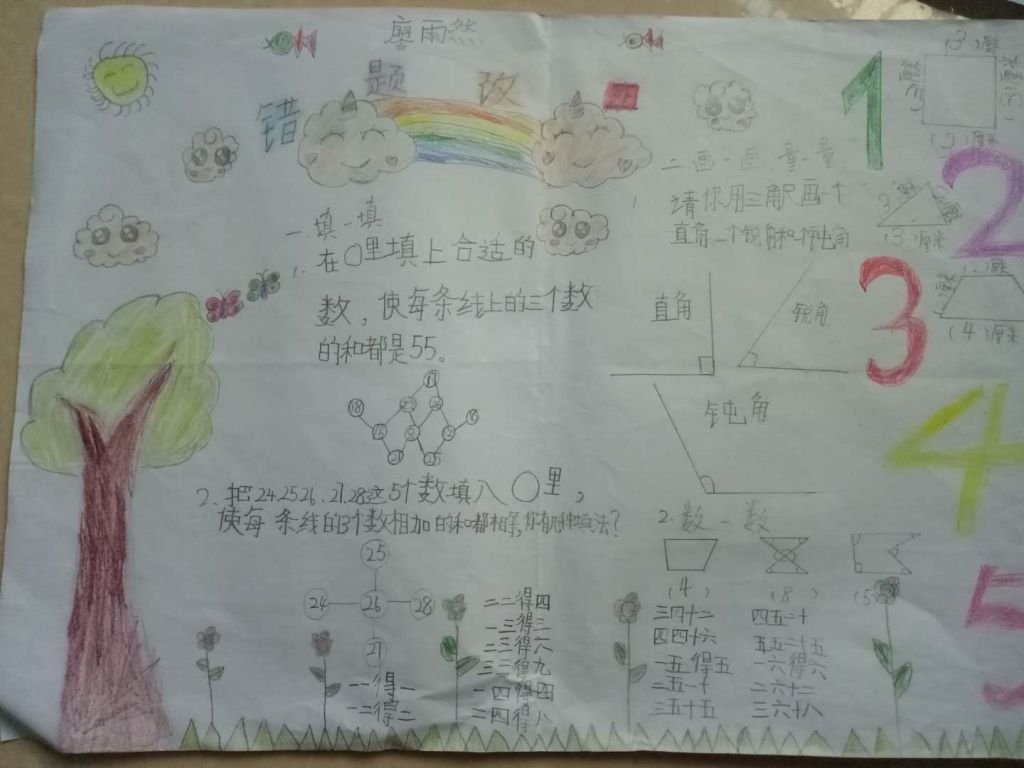 雨然
错题改
一、填一填
1.在○里填上合适的
数，使每条线上的三个数
的和都是55。
18
2.把24.25 26.27.28这5个数填入○里，
使每条线的3个数相加的和都相等,你有几种填法?
25
24 26 28
27
一一得一
一二得二
二二得四
一三得三
二三得六
三三得九
一四得四
二四得八
二画一画量一量
1
请你用三角尺画一个
直角一个锐角和一个钝角
直角
锐角
钝角
2.数一数
(4) (8) (5)
三四十二
四四十六
一五得五
二五一十
三五十五
四五二十
五五二十五
一六得六
二六十二
三六十八
1
2
3
4
5
(3)厘米
(3)厘米
(3)厘米
(3)厘米
3厘米
(3)厘米
(2)厘米
(4)厘米